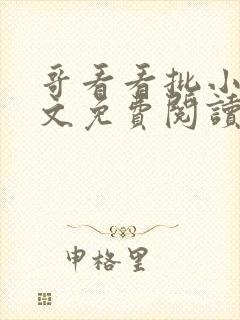 哥看看批小
文免費閱讀
申格里